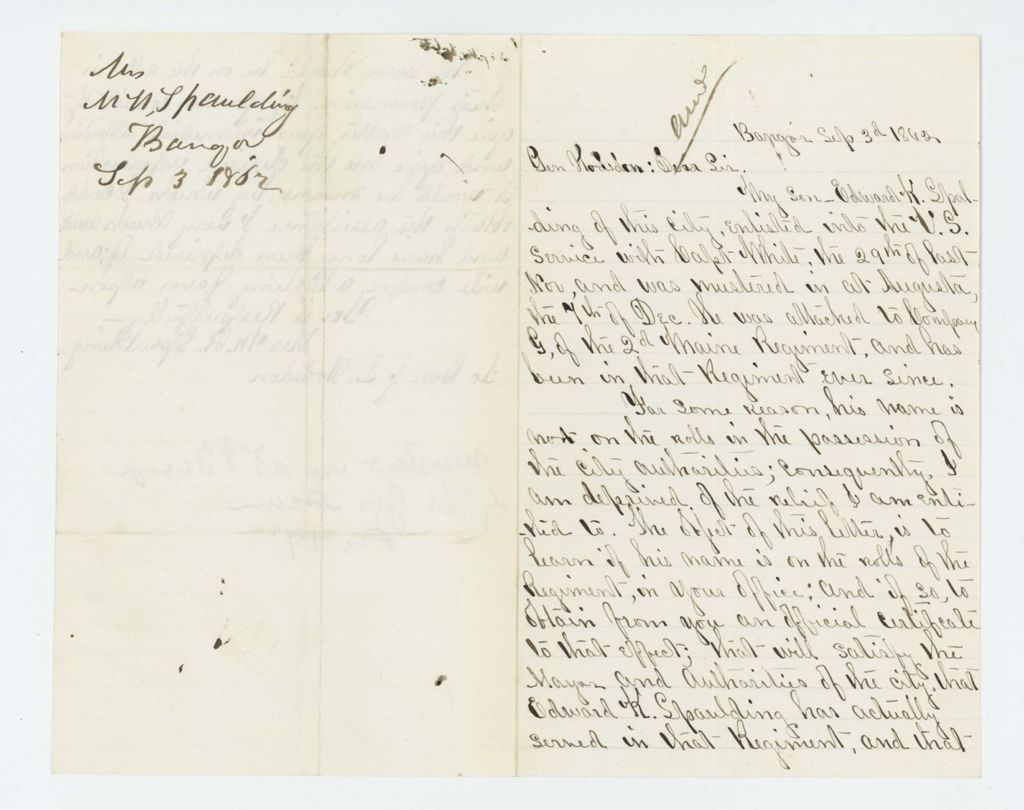 Mrs
M. H. Spaulding
Bangor
Sep 3 1862
ansd
Bangor Sep 3d 1862
Gen Hodsdon: Dear Sir.
My Son Edward K. Spaul-
ding of this City, enlisted into the U.S.
Service with Capt White, the 29th of last
Nov, and was mustered in at Augusta,
the 7th of Dec. He was attached to Company
G, of the 2d Maine Regiment, and has
been in that Regiment ever since.
For some reason, his name is
not on the rolls in the possession of
the city authorities; consequently, I
am deprived of the relief I am enti-
tled to. The object of this letter, is to
learn if his name is on the rolls of the
Regiment, in your office; and if so, to
obtain from you an official certificate
to that effect; that will satisfy the
Mayor and Authorities of the city, that
Edward K. Spaulding has actually
served in that Regiment, and that